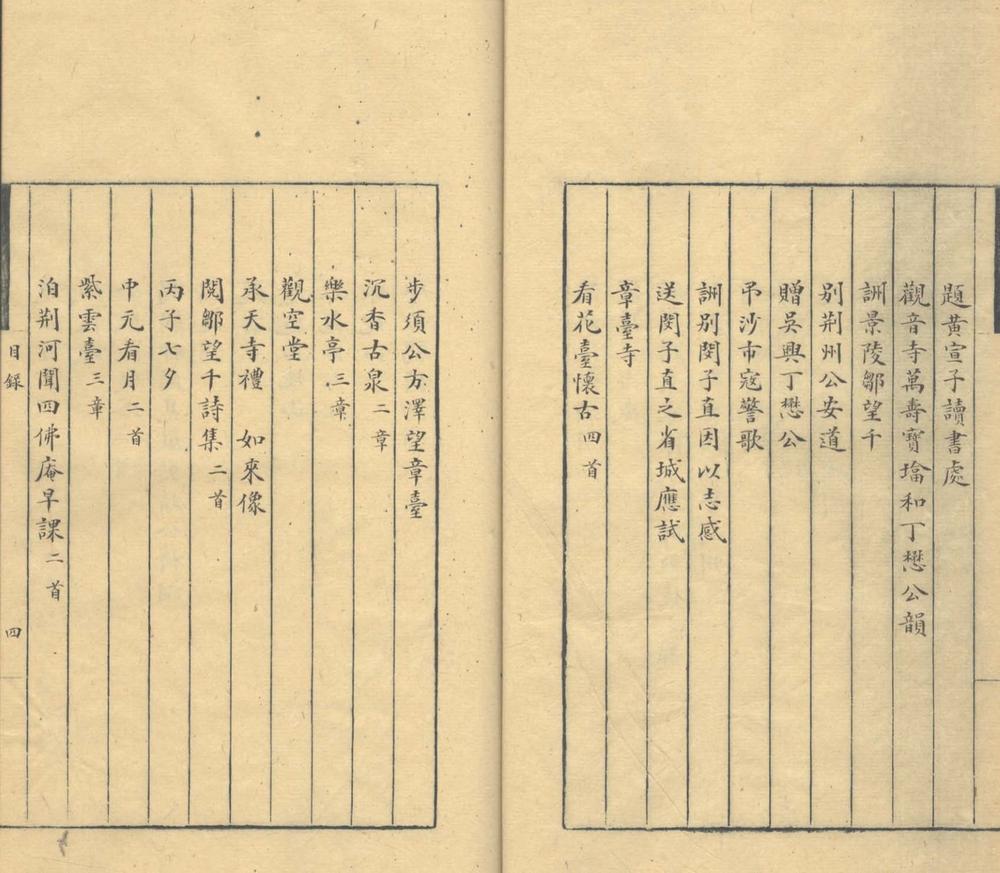 題黄宣子讀書處
觀音寺萬壽寶㙮和丁懋公韻
詶景陵鄒望千
别荆州公安道
贈吳興丁懋公
弔沙市寇警歌
詶别閔子直因以志感
送閔子直之省城應試
章臺寺
看花臺懷古四首
步須公方澤望章臺
沉香古泉二章
樂水亭三章
觀空堂
承天寺禮　如來像
閱鄒望千詩集二首
丙子七夕
中元看月二首
紫雲臺三章
泊荆河聞四佛庵早課二首
目錄
四